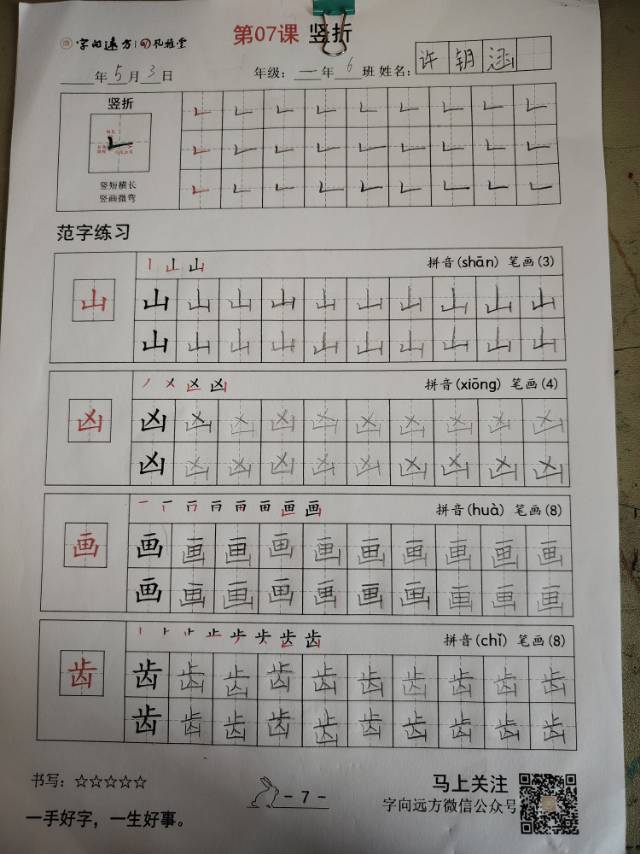 字向远方 孔雅堂
第07课 竖折
年5月3日 年级：一年6班 姓名：许钥涵
竖折
竖短横长
竖画微弯
范字练习
山 拼音(shān) 笔画(3)
山 山 山 山 山 山 山 山 山 山
山 山 山 山 山 山 山 山 山 山 山
凶 拼音(xiōng) 笔画(4)
凶 凶 凶 凶 凶 凶 凶 凶 凶 凶
凶 凶 凶 凶 凶 凶 凶 凶 凶 凶 凶
画 拼音(huà) 笔画(8)
画 画 画 画 画 画 画 画 画 画
画 画 画 画 画 画 画 画 画 画 画
齿 拼音(chǐ) 笔画(8)
齿 齿 齿 齿 齿 齿 齿 齿 齿 齿
齿 齿 齿 齿 齿 齿 齿 齿 齿 齿 齿
书写：☆☆☆☆☆
一手好字，一生好事。
- 7 -
马上关注
字向远方微信公众号